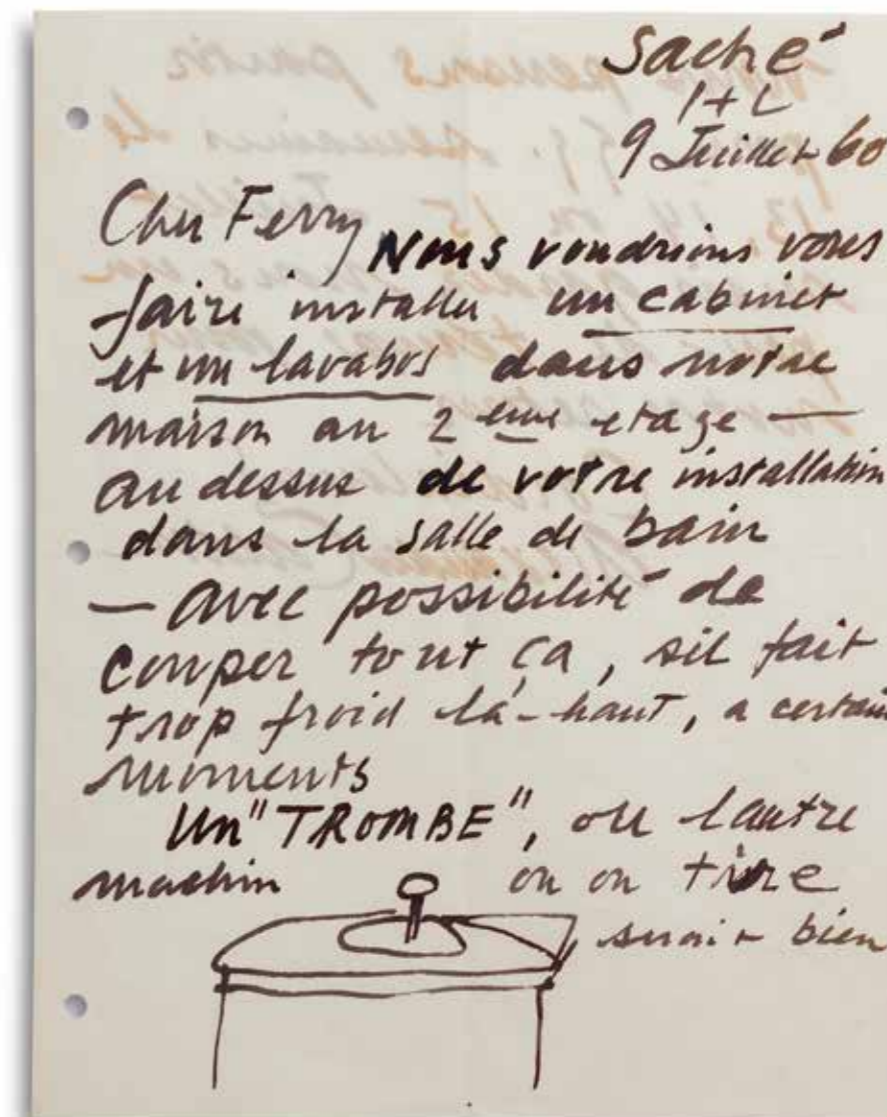 Saché
I+L
9 Juillet 60
Cher Ferry Nous voudrions vous
faire installer un cabinet
et un lavabos dans notre
maison au 2 eme etage —
au dessus de votre installation
dans la salle de bain
— avec possibilité de
couper tout ça, sil fait
trop froid là-haut, a certain
moments
Un "TROMBE", ou lautre
machin ou on tire
serait bien